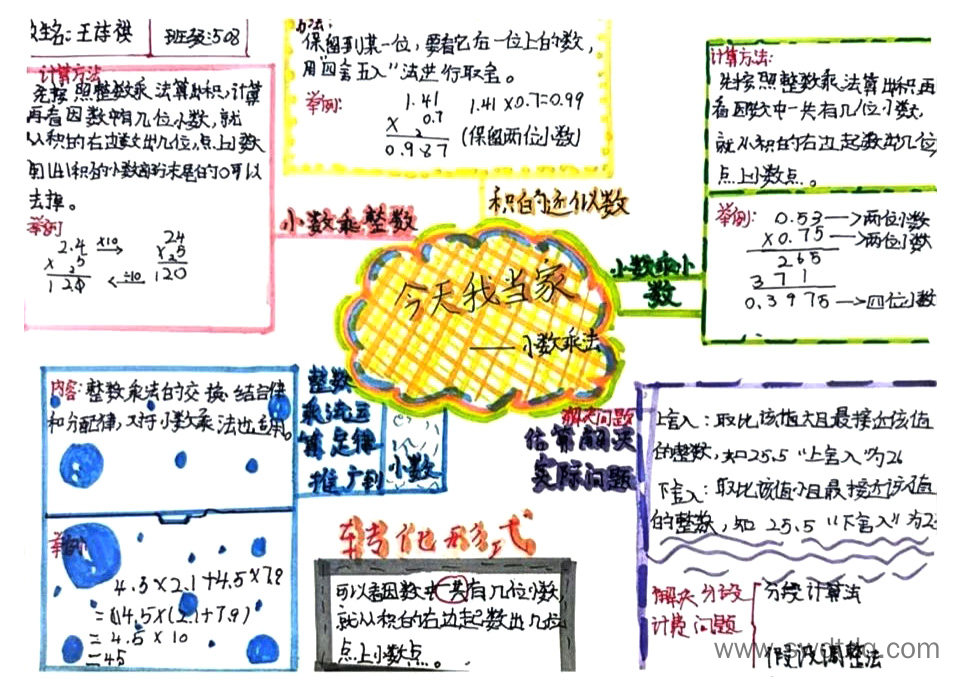 姓名:王诗祺
班级:508
计算方法
先按照整数乘法算出积,计算
再看因数中有几位小数,就
从积的右边数出几位,点上小数
积的小数部分末尾的0可以
去掉。
举例
2.4 ×10 → 24
× 5 × 5
120 ←÷10 120
小数乘整数
方法:
保留到某一位,要看它后一位上的数,
用"四舍五入"法进行取舍。
举例:
1.41 1.41×0.7≈0.99
× 0.7
0.987 (保留两位小数)
积的近似数
计算方法:
先按照整数乘法算出积,再
看因数中一共有几位小数,
就从积的右边起数出几位
点上小数点。
举例: 0.53→两位小数
×0.75→两位小数
265
371
0.3975→四位小数
小数乘小
数
今天我当家
——小数乘法
内容:整数乘法的交换,结合律
和分配律,对于小数乘法也适用。
举例:
4.5×2.1+4.5×7.9
=4.5×(2.1+7.9)
=4.5×10
=45
整数
乘法运
算定律
推广到
小数
转化形式
可以看因数中一共有几位小数
就从积的右边起数出几位
点上小数点。
解决问题
估算解决
实际问题
上舍入:取比该值大且最接近该值
的整数,如25.5"上舍入"为26
下舍入:取比该值小且最接近该值
的整数,如25.5"下舍入"为2
解决分段
计费问题
分段计算法
假设调整法
www.swdtdq.com